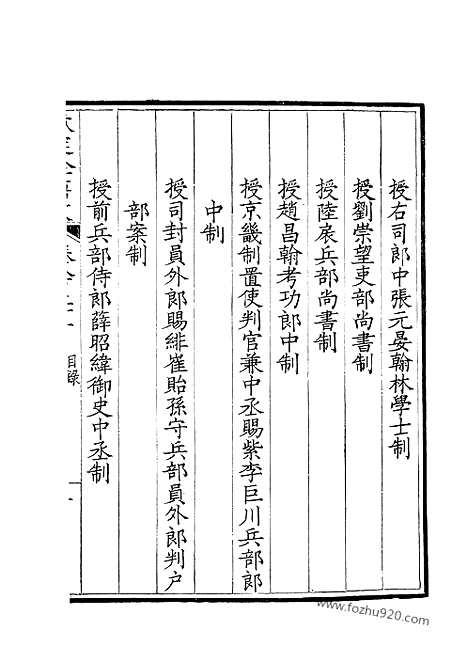 授右司郎中張元晏翰林學士制
授劉崇望吏部尚書制
授陸扆兵部尚書制
授趙昌翰考功郎中制
授京畿制置使判官兼中丞賜紫李巨川兵部郎
中制
授司封員外郎賜緋崔貽孫守兵部員外郎判户
部案制
授前兵部侍郎薛昭緯御史中丞制
目錄
www.fozhu920.com